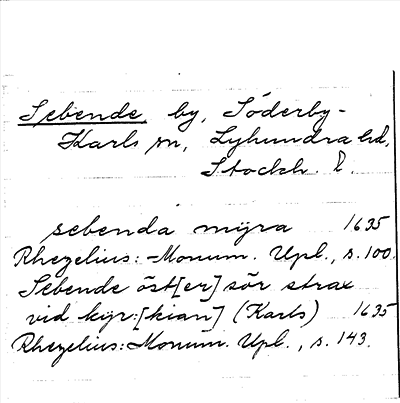 Sebende, by, Söderby-
Karls sn, Lyhundra hd,
Stockh. l.
sebenda mÿra 1635
Rhezelius: Monum. Upl., s. 100.
Sebende öst[er] sör strax
vid kyr:[kian] (Karls) 1635
Rhezelius: Monum. Upl., s. 143.